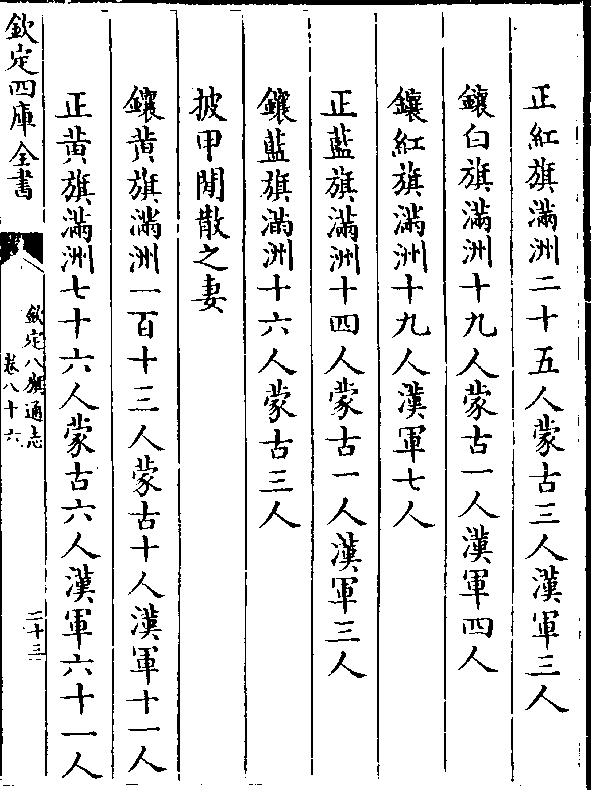 正紅旗滿洲二十五人蒙古三人漢軍三人
鑲白旗滿洲十九人蒙古一人漢軍四人
鑲紅旗滿洲十九人漢軍七人
正藍旗滿洲十四人蒙古一人漢軍三人
鑲藍旗滿洲十六人蒙古三人
披甲閒散之妻
鑲黄旗滿洲一百十三人蒙古十人漢軍十一人
正黄旗滿洲七十六人蒙古六人漢軍六十一人
欽定四庫全書
欽定八旗通志
卷八十六
二十三